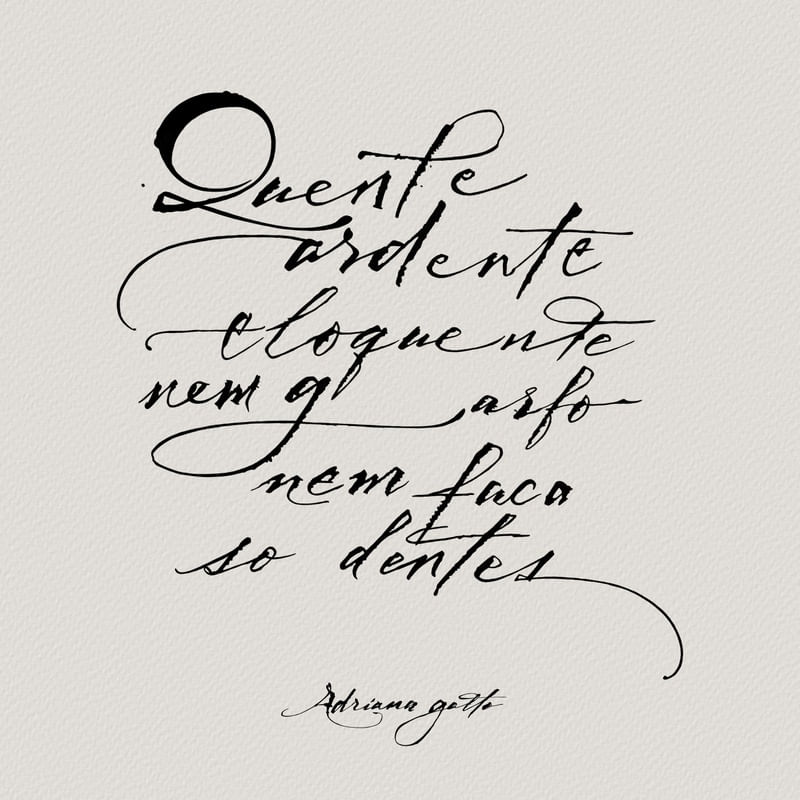 Quente
ardente
eloquente
nem garfo
nem faca
so dentes
Adriana gotto